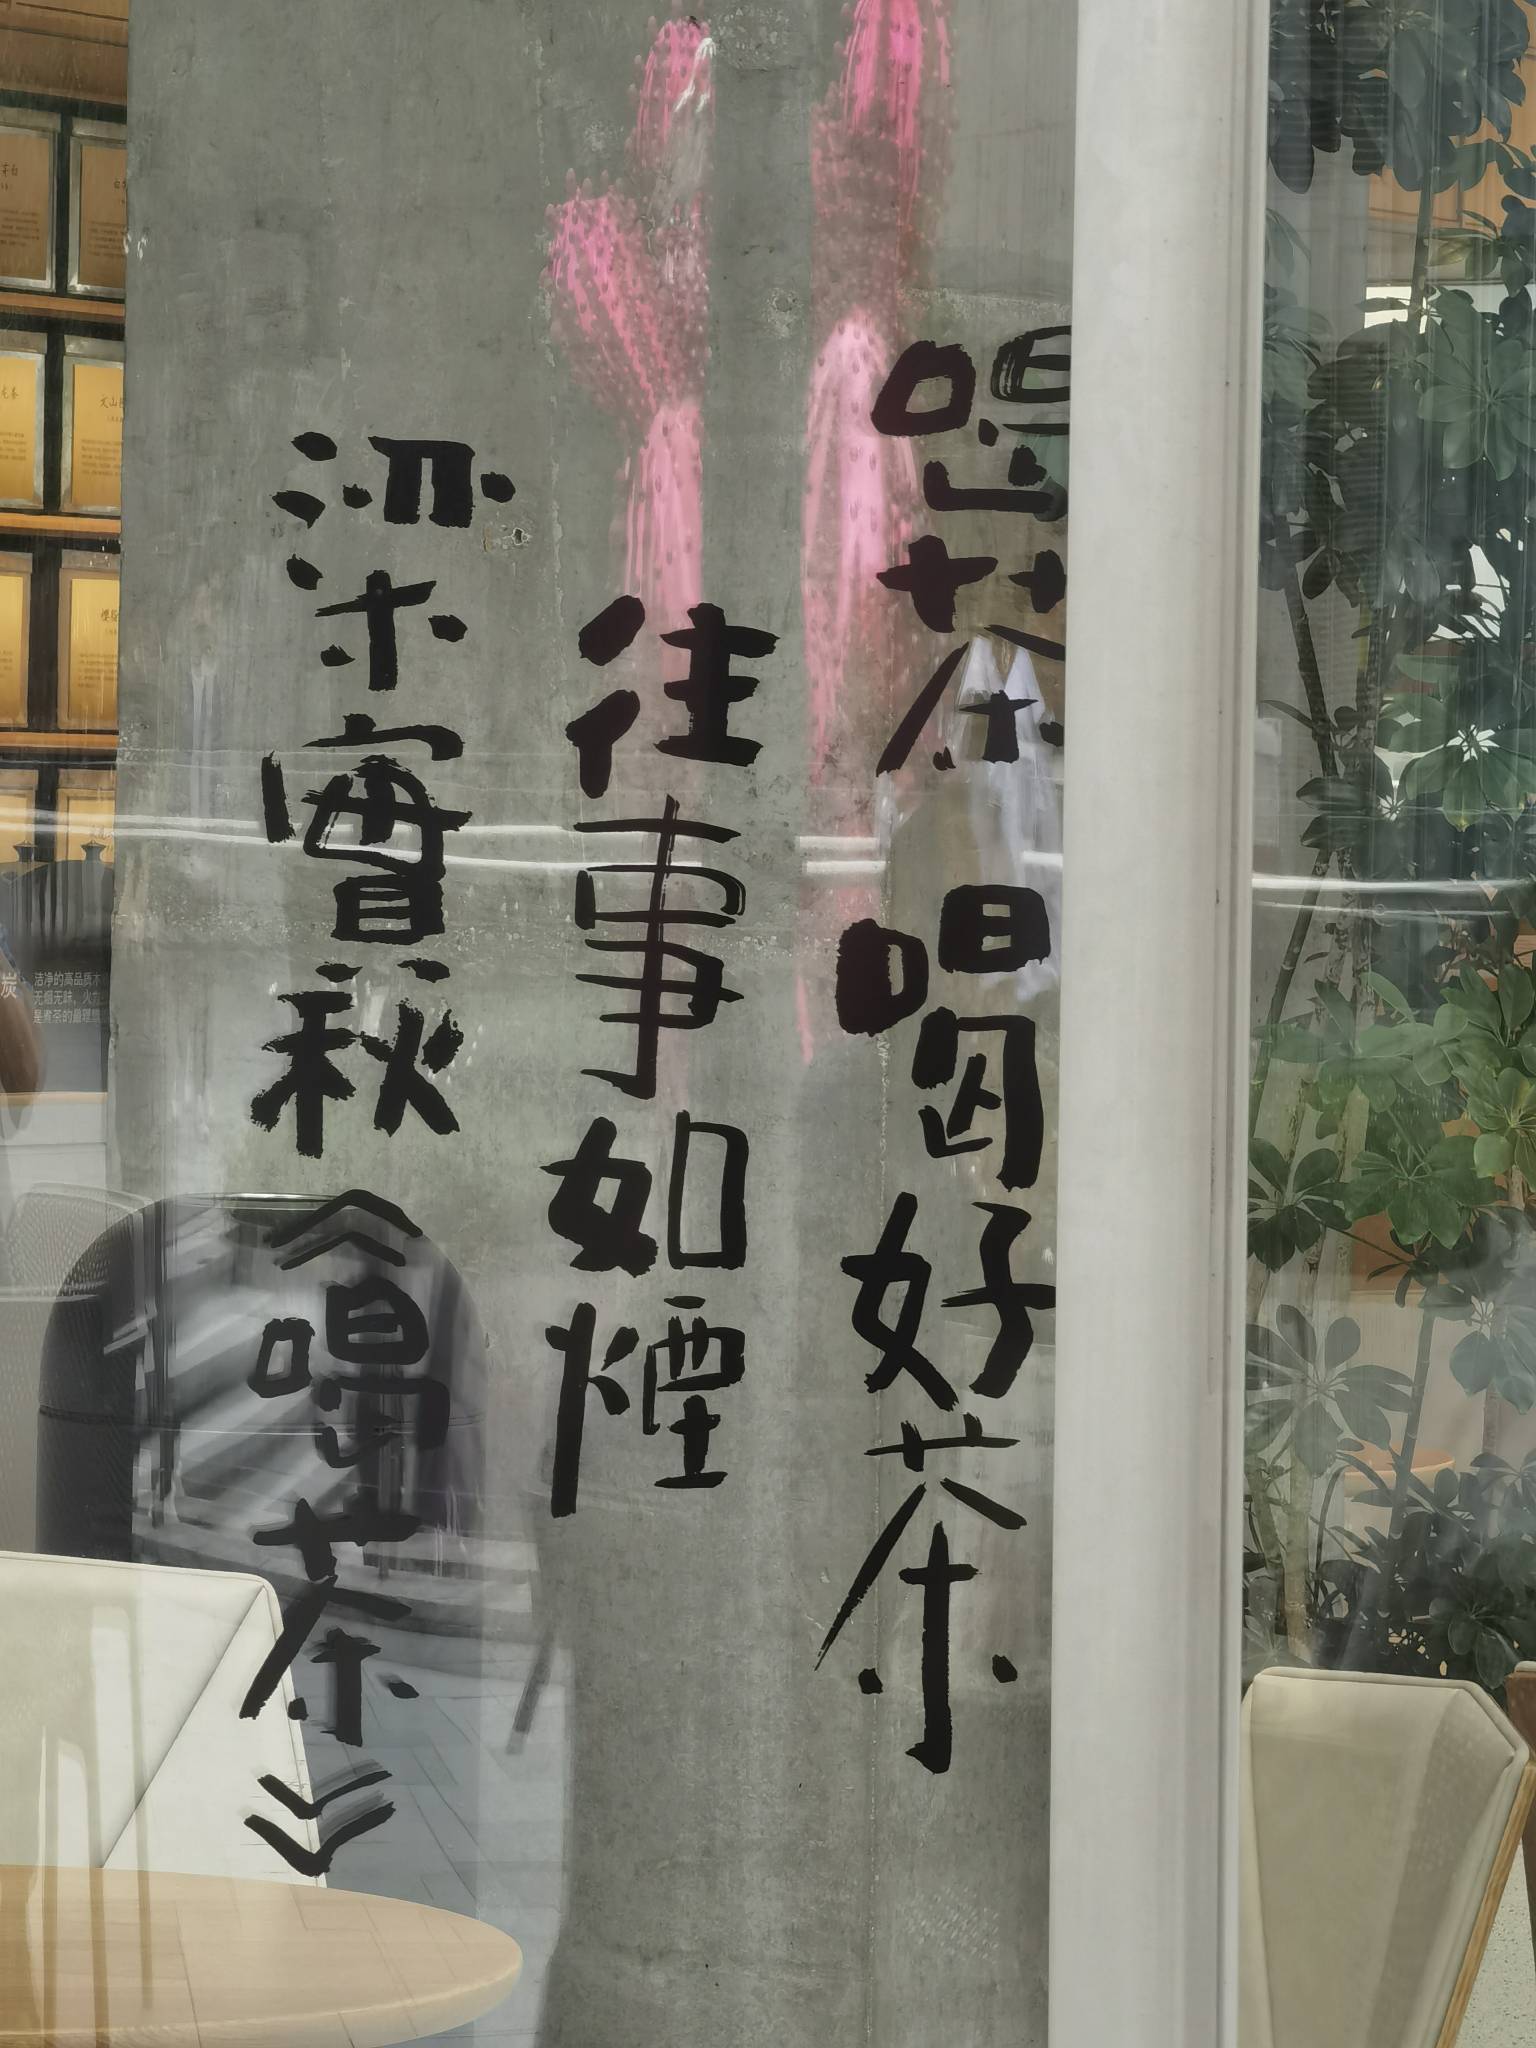 喝茶喝好茶
往事如煙
梁實秋《喝茶》
炭
洁净的高品质木
无烟无味，火力
是煮茶的最理想